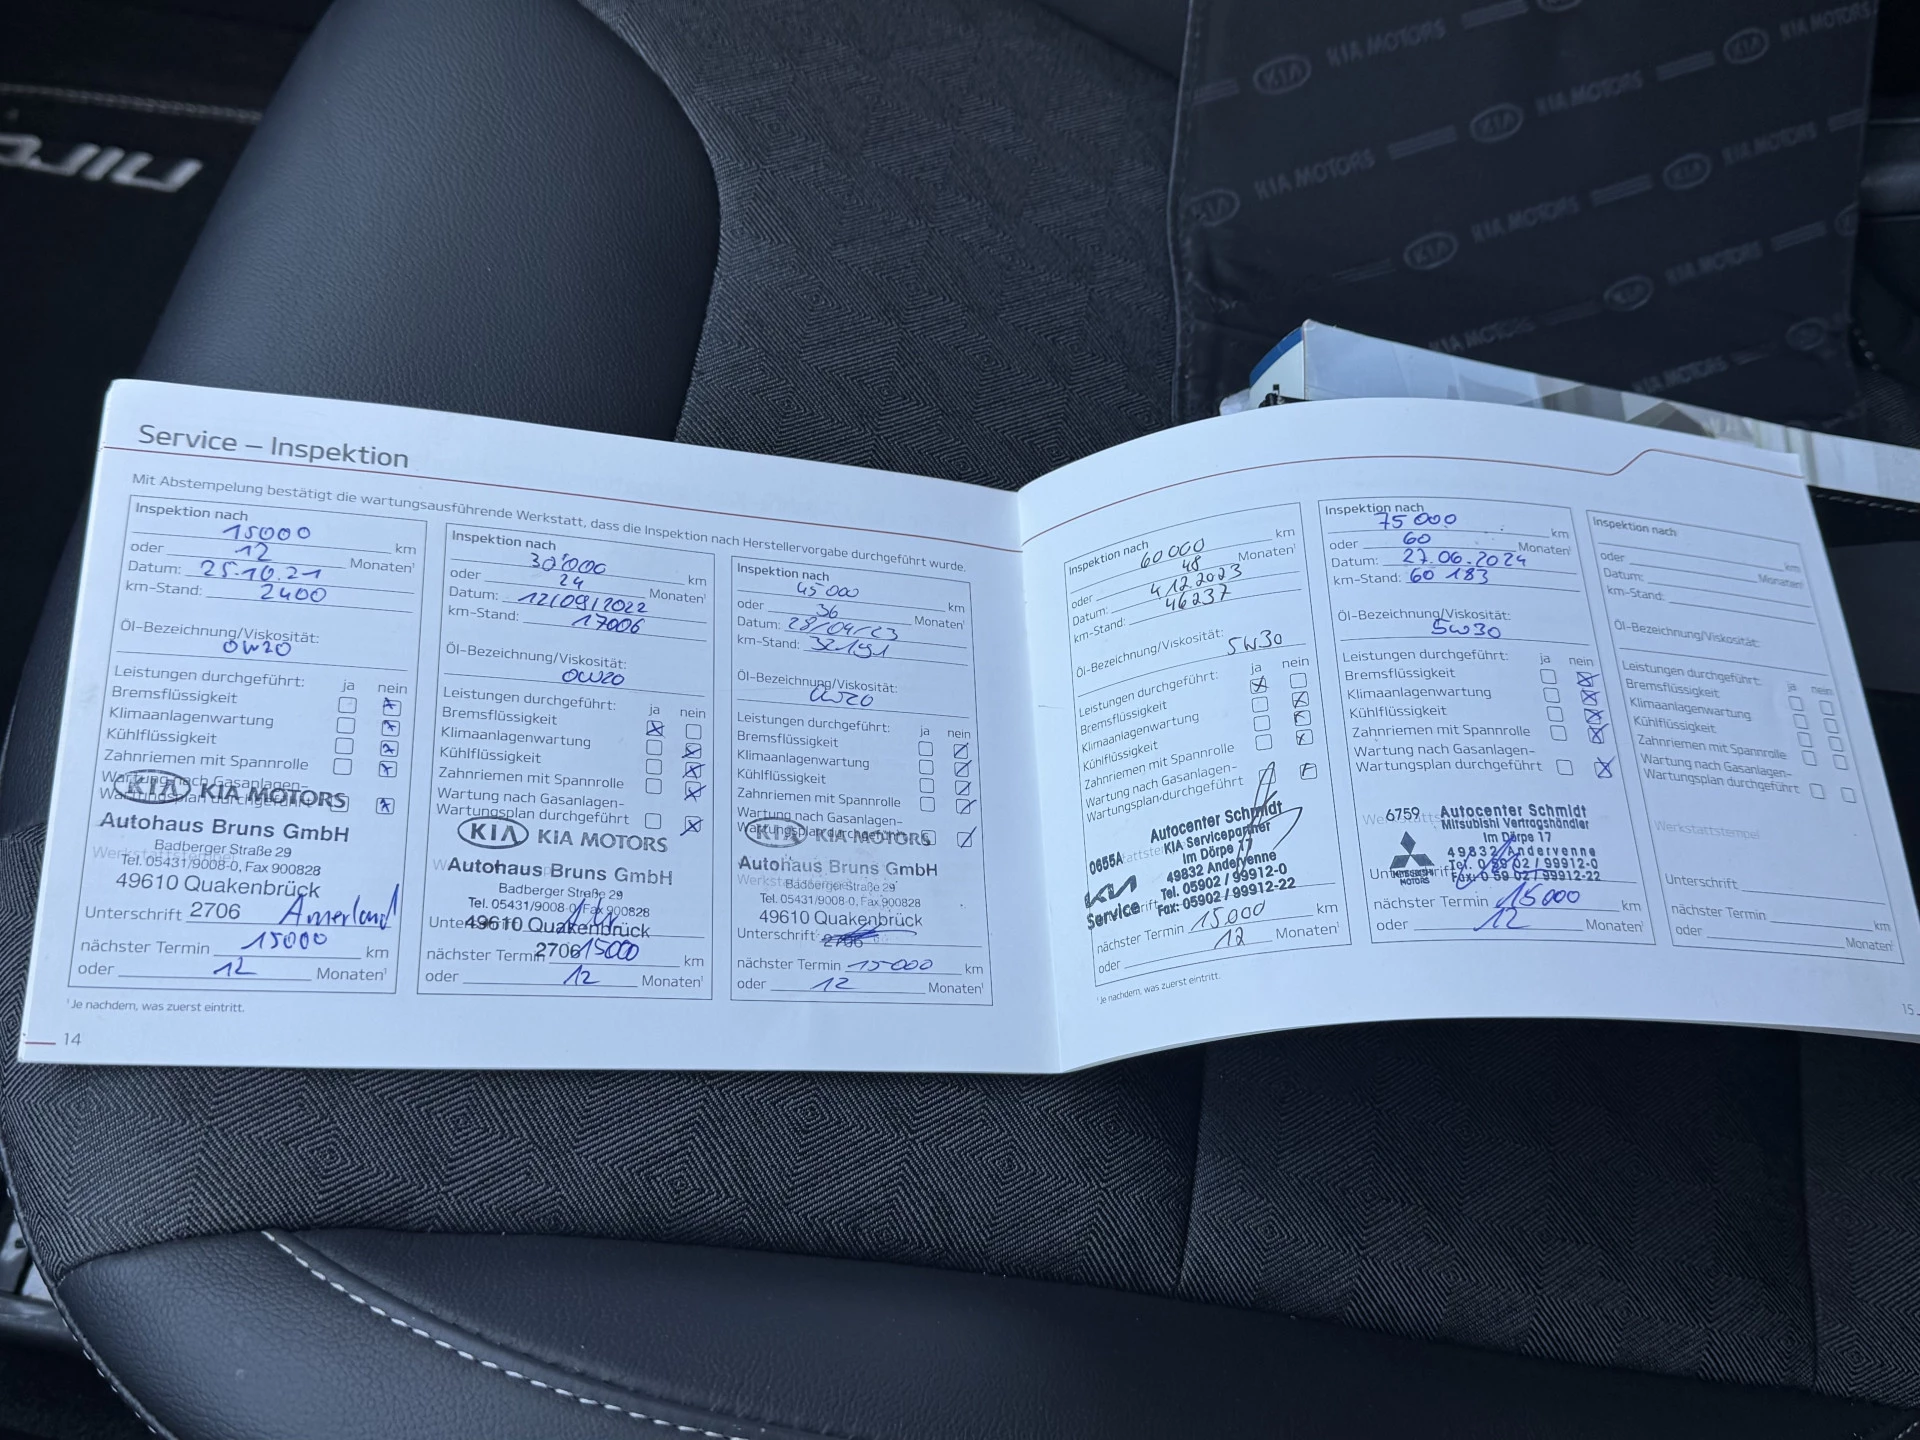 niro
KIA KIA MOTORS
Service – Inspektion
Mit Abstempelung bestätigt die wartungsausführende Werkstatt, dass die Inspektion nach Herstellervorgabe durchgeführt wurde.
Inspektion nach
15000 km
oder 12 Monaten¹
Datum: 25.10.21
km-Stand: 2400
Öl-Bezeichnung/Viskosität:
0W20
Leistungen durchgeführt: ja nein
Bremsflüssigkeit
Klimaanlagenwartung
Kühlflüssigkeit
Zahnriemen mit Spannrolle
Wartung nach Gasanlagen-
Wartungsplan durchgeführt
KIA KIA MOTORS
Autohaus Bruns GmbH
Badberger Straße 29
Werkstattstempel
Tel. 05431/9008-0, Fax 900828
49610 Quakenbrück
Unterschrift 2706
nächster Termin 15000 km
oder 12 Monaten¹
Inspektion nach
30'000 km
oder 24 Monaten¹
Datum: 12/09/2022
km-Stand: 17006
Öl-Bezeichnung/Viskosität:
0W20
Leistungen durchgeführt: ja nein
Bremsflüssigkeit
Klimaanlagenwartung
Kühlflüssigkeit
Zahnriemen mit Spannrolle
Wartung nach Gasanlagen-
Wartungsplan durchgeführt
KIA KIA MOTORS
Autohaus Bruns GmbH
Badberger Straße 29
Tel. 05431/9008-0, Fax 900828
49610 Quakenbrück
2706
nächster Termin 15000 km
oder 12 Monaten¹
Inspektion nach
45000 km
oder 36 Monaten¹
Datum: 28/04/23
km-Stand: 32191
Öl-Bezeichnung/Viskosität:
0W20
Leistungen durchgeführt: ja nein
Bremsflüssigkeit
Klimaanlagenwartung
Kühlflüssigkeit
Zahnriemen mit Spannrolle
Wartung nach Gasanlagen-
Wartungsplan durchgeführt
KIA KIA MOTORS
Autohaus Bruns GmbH
Badberger Straße 29
Tel. 05431/9008-0, Fax 900828
49610 Quakenbrück
Unterschrift 2706
nächster Termin 15000 km
oder 12 Monaten¹
¹Je nachdem, was zuerst eintritt.
14
Inspektion nach
60000 km
oder 48 Monaten¹
Datum: 4.12.2023
km-Stand: 46237
Öl-Bezeichnung/Viskosität:
5W30
Leistungen durchgeführt: ja nein
Bremsflüssigkeit
Klimaanlagenwartung
Kühlflüssigkeit
Zahnriemen mit Spannrolle
Wartung nach Gasanlagen-
Wartungsplan durchgeführt
0655A Autocenter Schmidt
KIA Servicepartner
Im Dörpe 17
49832 Andervenne
Tel. 05902 / 99912-0
Fax: 05902 / 99912-22
KIA
Service
nächster Termin 15000 km
oder 12 Monaten¹
¹Je nachdem, was zuerst eintritt.
Inspektion nach
75000 km
oder 60 Monaten¹
Datum: 27.06.2024
km-Stand: 60 183
Öl-Bezeichnung/Viskosität:
5W30
Leistungen durchgeführt: ja nein
Bremsflüssigkeit
Klimaanlagenwartung
Kühlflüssigkeit
Zahnriemen mit Spannrolle
Wartung nach Gasanlagen-
Wartungsplan durchgeführt
6759 Autocenter Schmidt
Mitsubishi Vertragshändler
Im Dörpe 17
49832 Andervenne
Tel. 0 59 02 / 99912-0
Fax: 0 59 02 / 99912-22
MITSUBISHI
MOTORS
nächster Termin 15000 km
oder 12 Monaten¹
Inspektion nach
km
oder Monaten¹
Datum:
km-Stand:
Öl-Bezeichnung/Viskosität:
Leistungen durchgeführt: ja nein
Bremsflüssigkeit
Klimaanlagenwartung
Kühlflüssigkeit
Zahnriemen mit Spannrolle
Wartung nach Gasanlagen-
Wartungsplan durchgeführt
Werkstattstempel
Unterschrift
nächster Termin km
oder Monaten¹
15